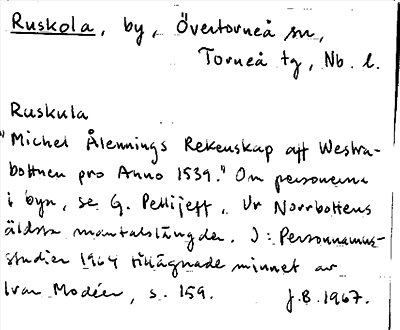 Ruskola, by, Övertorneå sn,
Torneå tg, Nb. l.
Ruskula
"Michel Ålennings Rekenskap aff Westra-
bottnen pro Anno 1539." Om personerna
i byn, se G. Pellijeff, Ur Norrbottens
äldsta mantalslängder. I: Personnamns-
studier 1964 tillägnade minnet av
Ivar Modéer, s. 159. J.B. 1967.